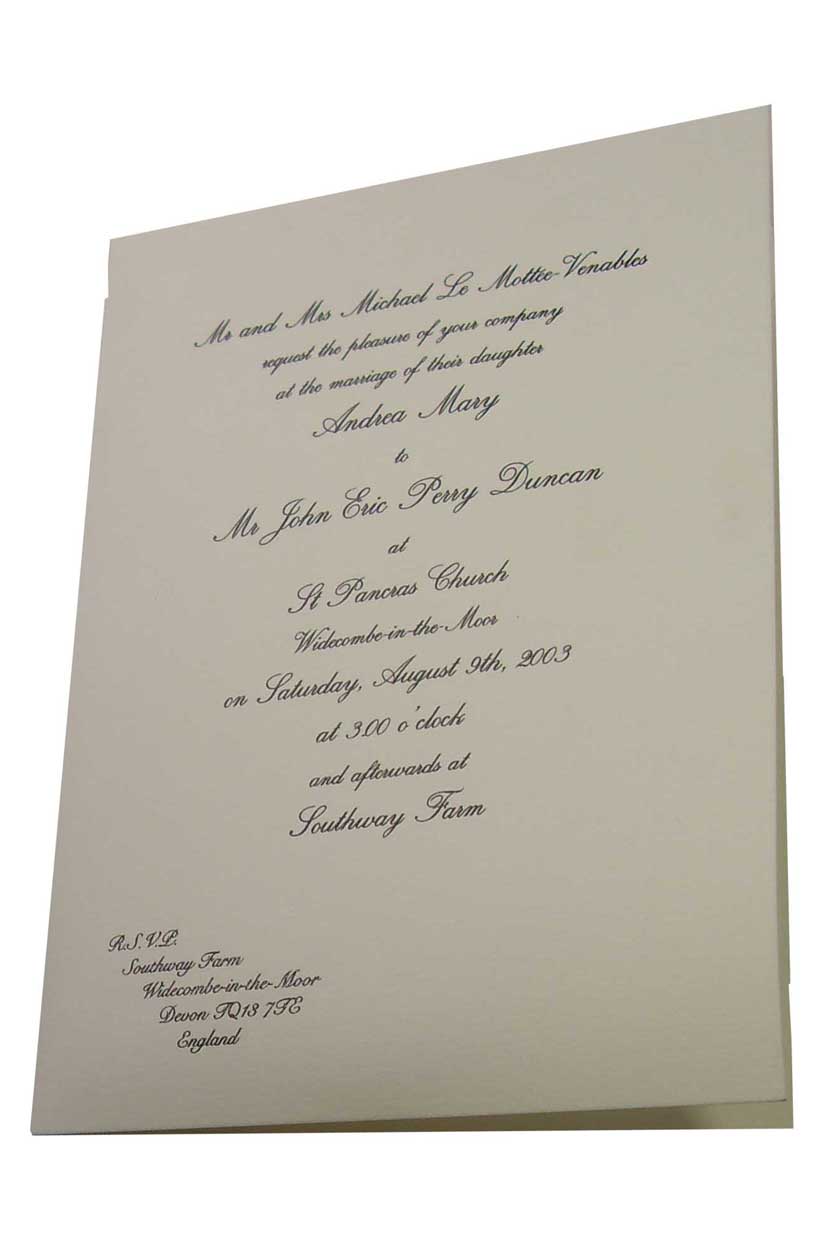 Mr and Mrs Michael Le Mottée-Venables
request the pleasure of your company
at the marriage of their daughter
Andrea Mary
to
Mr John Eric Perry Duncan
at
St Pancras Church
Widecombe-in-the-Moor
on Saturday, August 9th, 2003
at 3.00 o'clock
and afterwards at
Southway Farm
R.S.V.P.
Southway Farm
Widecombe-in-the-Moor
Devon TQ13 7TE
England